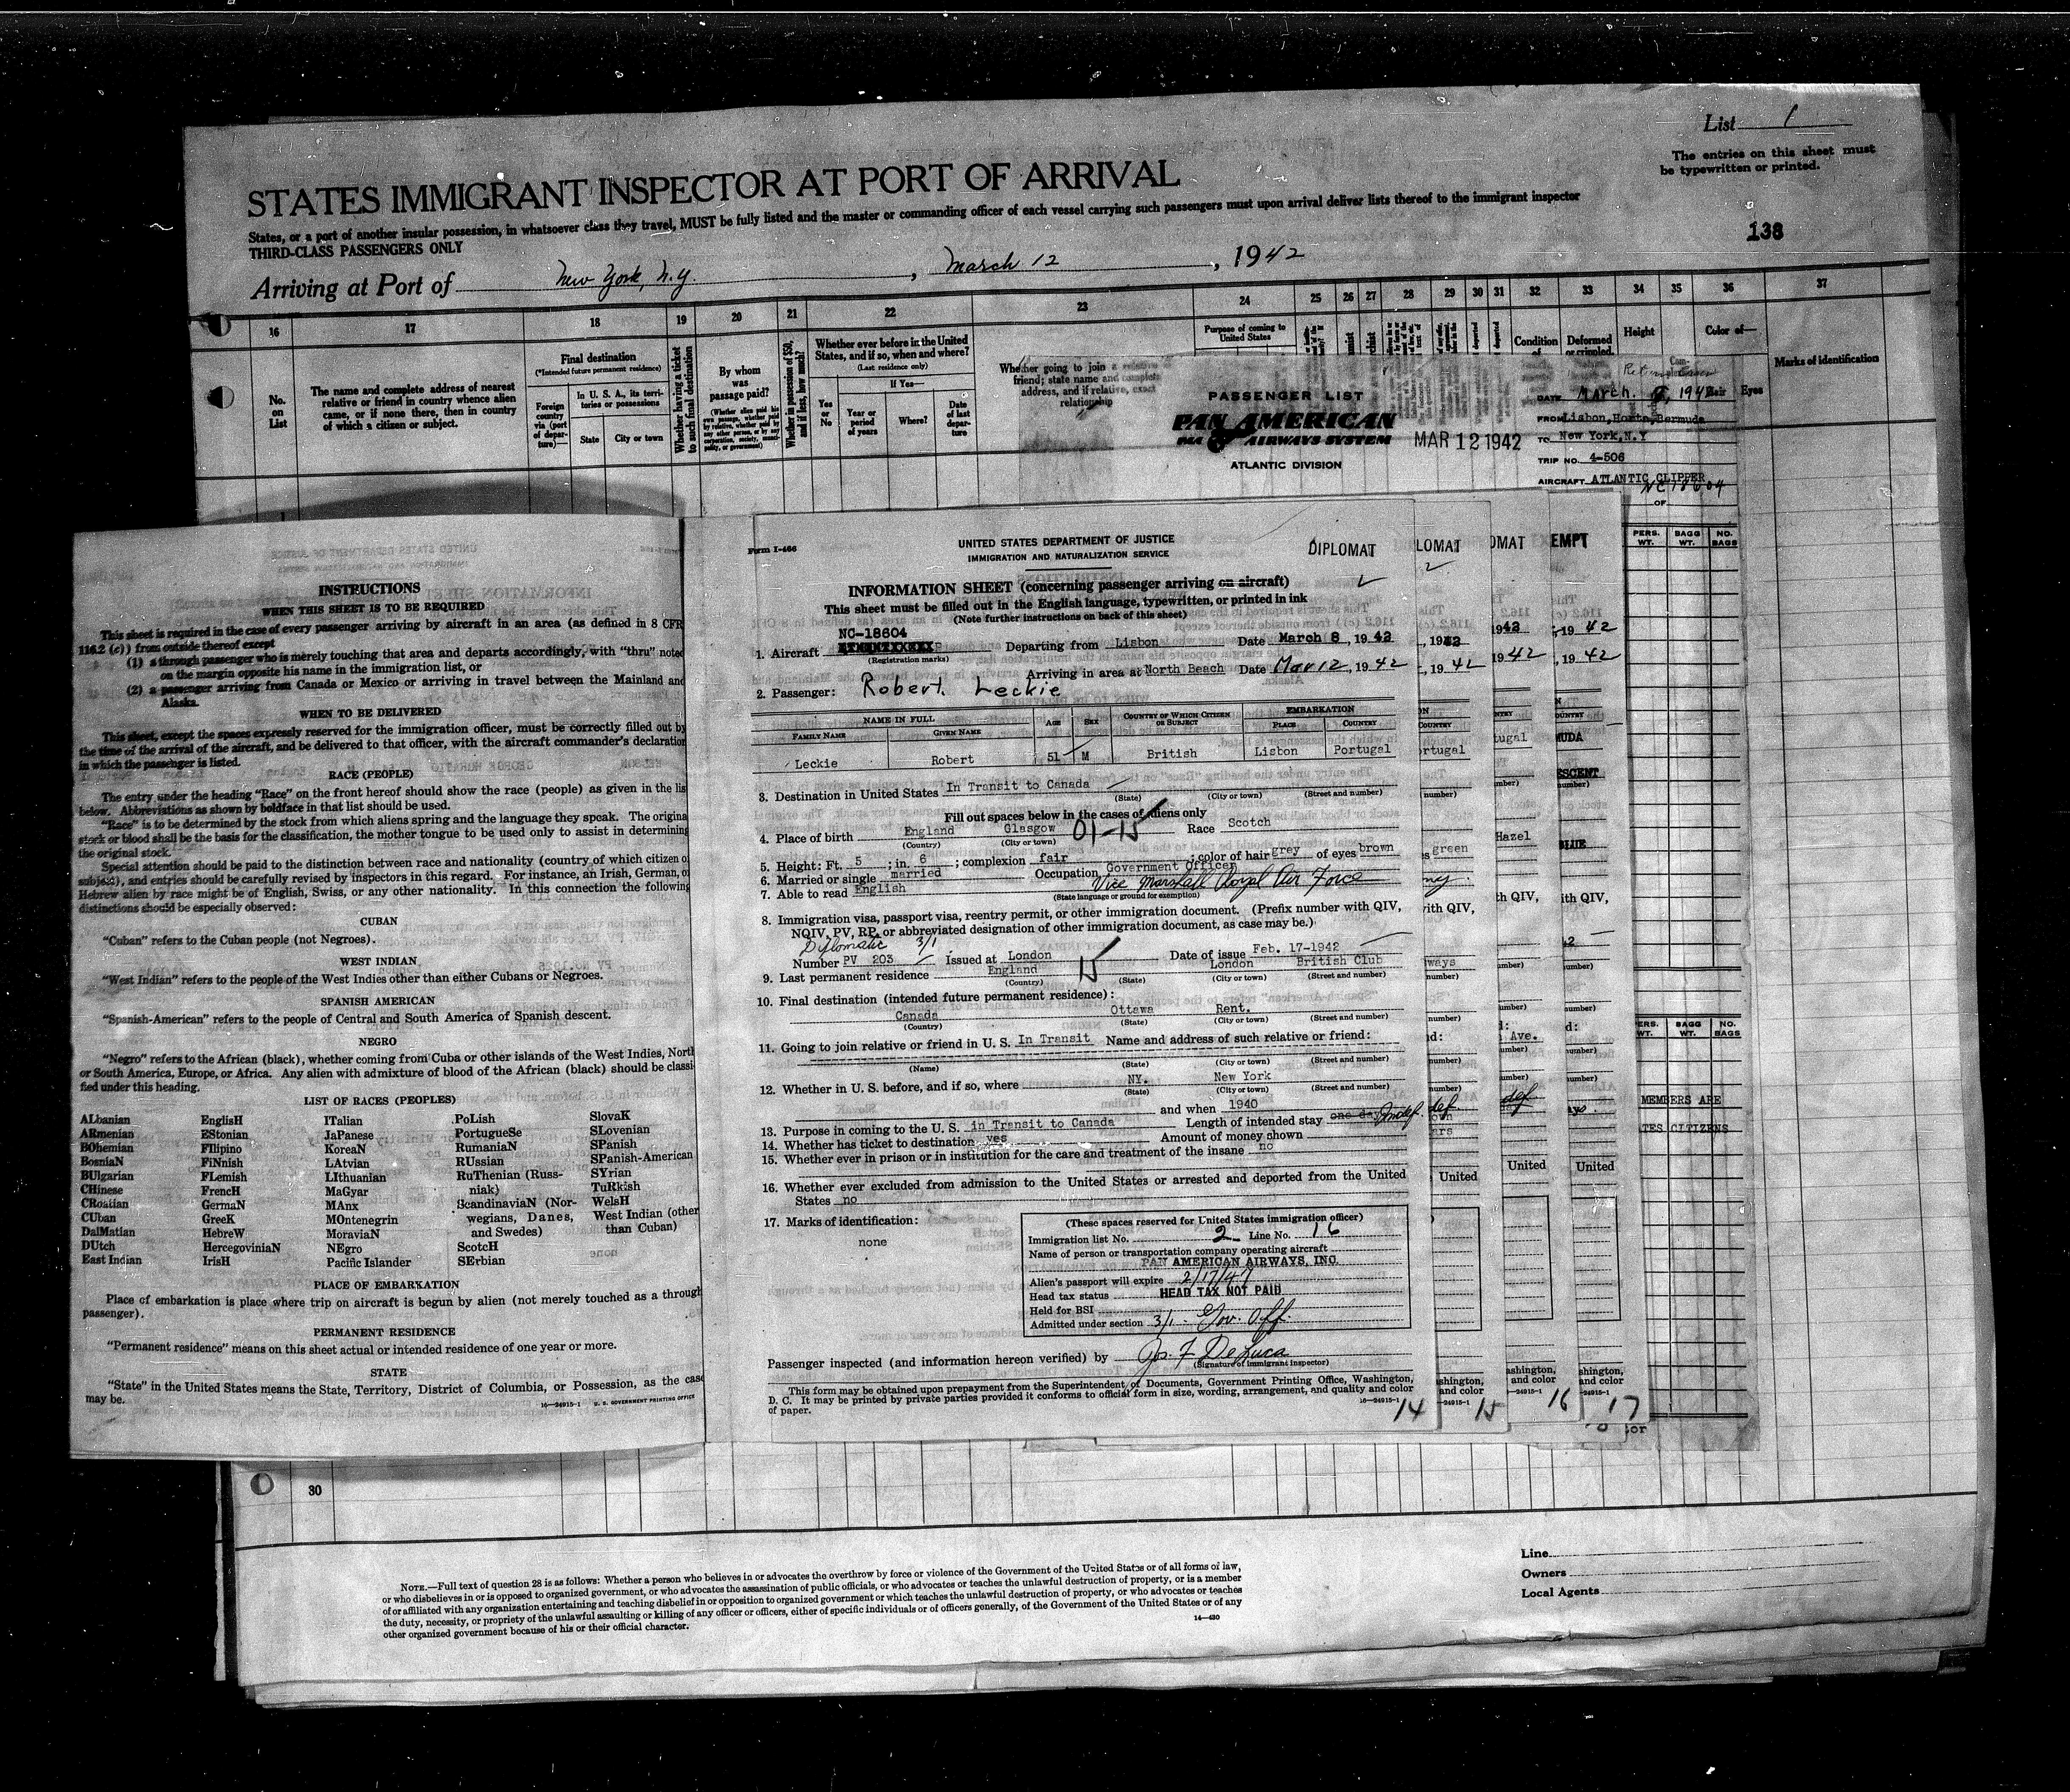 List 1
The entries on this sheet must
be typewritten or printed.
STATES IMMIGRANT INSPECTOR AT PORT OF ARRIVAL
States, or a port of another insular possession, in whatsoever class they travel, MUST be fully listed and the master or commanding officer of each vessel carrying such passengers must upon arrival deliver lists thereof to the immigrant inspector
THIRD-CLASS PASSENGERS ONLY
138
Arriving at Port of New York, N.Y. , March 12 , 1942
16 17 18 19 20 21 22 23 24 25 26 27 28 29 30 31 32 33 34 35 36 37
No.
on
List
The name and complete address of nearest
relative or friend in country whence alien
came, or if none there, then in country
of which a citizen or subject.
Final destination
(*Intended future permanent residence)
Foreign
country
via (port
of depar-
ture)—
In U. S. A., its terri-
tories or possessions
State
City or town
Whether having a ticket
to such final destination
By whom
was
passage paid?
Whether in possession of $50,
and if less, how much?
Whether ever before in the United
States, and if so, when and where?
(Last residence only)
Yes
or
No
If Yes—
Year or
period
of years
Where?
Date
of last
depar-
ture
Whether going to join a relative or
friend; state name and complete
address, and if relative, exact
relationship
Purpose of coming to
United States
Condition
of
Deformed
or crippled.
Height
Color of—
Eyes
Marks of identification
PASSENGER LIST
PAN AMERICAN
PAA AIRWAYS SYSTEM
ATLANTIC DIVISION
MAR 12 1942
DATE March. 1942
FROM Lisbon, Horta, Bermuda
TO New York, N.Y
TRIP NO. 4-506
AIRCRAFT ATLANTIC CLIPPER
NC 18604
OF
PERS.
WT.
BAGG
WT.
NO.
BAGS
INSTRUCTIONS
WHEN THIS SHEET IS TO BE REQUIRED
This sheet is required in the case of every passenger arriving by aircraft in an area (as defined in 8 CFR
116.2 (c)) from outside thereof except
(1) a through passenger who is merely touching that area and departs accordingly, with "thru" noted
on the margin opposite his name in the immigration list, or
(2) a passenger arriving from Canada or Mexico or arriving in travel between the Mainland and
Alaska.
WHEN TO BE DELIVERED
This sheet, except the spaces expressly reserved for the immigration officer, must be correctly filled out by
the time of the arrival of the aircraft, and be delivered to that officer, with the aircraft commander's declaration
in which the passenger is listed.
RACE (PEOPLE)
The entry under the heading "Race" on the front hereof should show the race (people) as given in the lis
below. Abbreviations as shown by boldface in that list should be used.
"Race" is to be determined by the stock from which aliens spring and the language they speak. The origina
stock or blood shall be the basis for the classification, the mother tongue to be used only to assist in determining
the original stock.
Special attention should be paid to the distinction between race and nationality (country of which citizen o
subject), and entries should be carefully revised by inspectors in this regard. For instance, an Irish, German, o
Hebrew alien by race might be of English, Swiss, or any other nationality. In this connection the following
distinctions should be especially observed:
CUBAN
"Cuban" refers to the Cuban people (not Negroes).
WEST INDIAN
"West Indian" refers to the people of the West Indies other than either Cubans or Negroes.
SPANISH AMERICAN
"Spanish-American" refers to the people of Central and South America of Spanish descent.
NEGRO
"Negro" refers to the African (black), whether coming from Cuba or other islands of the West Indies, North
or South America, Europe, or Africa. Any alien with admixture of blood of the African (black) should be classi-
fied under this heading.
LIST OF RACES (PEOPLES)
ALbanian EnglisH ITalian PoLish SlovaK
ARmenian EStonian JaPanese PortugueSe SLovenian
BOhemian FIlipino KoreaN RumaniaN SPanish
BosniaN FiNnish LAtvian RUssian SPanish-American
BUlgarian FLemish LIthuanian RuThenian (Russ- SYrian
CHinese FrencH MaGyar niak) TuRkish
CRoatian GermaN MAnx ScandinaviaN (Nor- WelsH
CUban GreeK MOntenegrin wegians, Danes, West Indian (other
DalMatian HebreW MoraviaN and Swedes) than Cuban)
DUtch HercegoviniaN NEgro ScotcH
East Indian IrisH Pacific Islander SErbian
PLACE OF EMBARKATION
Place of embarkation is place where trip on aircraft is begun by alien (not merely touched as a through
passenger).
PERMANENT RESIDENCE
"Permanent residence" means on this sheet actual or intended residence of one year or more.
STATE
"State" in the United States means the State, Territory, District of Columbia, or Possession, as the case
may be.
16—24915-1 U. S. GOVERNMENT PRINTING OFFICE
Form I-466
UNITED STATES DEPARTMENT OF JUSTICE
IMMIGRATION AND NATURALIZATION SERVICE
DIPLOMAT
INFORMATION SHEET (concerning passenger arriving on aircraft)
This sheet must be filled out in the English language, typewritten, or printed in ink
(Note further instructions on back of this sheet)
NC-18604
1. Aircraft Departing from Lisbon Date March 8, 1942
(Registration marks)
Arriving in area at North Beach Date Mar 12, 1942
2. Passenger: Robert Leckie
NAME IN FULL AGE SEX COUNTRY OF WHICH CITIZEN OR SUBJECT EMBARKATION
FAMILY NAME GIVEN NAME PLACE COUNTRY
Leckie Robert 51 M British Lisbon Portugal
3. Destination in United States In Transit to Canada
(State) (City or town) (Street and number)
Fill out spaces below in the cases of aliens only
4. Place of birth England Glasgow 01-15 Race Scotch
(Country) (City or town)
5. Height: Ft. 5 ; in. 6 ; complexion fair ; color of hair grey of eyes brown
6. Married or single married Occupation Government Officer
7. Able to read English Vice Marshall Royal Air Force
(State language or ground for exemption)
8. Immigration visa, passport visa, reentry permit, or other immigration document. (Prefix number with QIV,
NQIV, PV, RP, or abbreviated designation of other immigration document, as case may be.)
Diplomatic 3/1
Number PV 203 Issued at London Date of issue Feb. 17-1942
9. Last permanent residence England 15 London British Club
(Country) (State) (City or town) (Street and number)
10. Final destination (intended future permanent residence):
Canada Ottawa Rent.
(Country) (State) (City or town) (Street and number)
11. Going to join relative or friend in U. S. In Transit Name and address of such relative or friend:
(Name) (State) (City or town) (Street and number)
12. Whether in U. S. before, and if so, where NY. New York
(State) (City or town) (Street and number)
and when 1940
13. Purpose in coming to the U. S. in Transit to Canada Length of intended stay one day Indef.
14. Whether has ticket to destination yes Amount of money shown
15. Whether ever in prison or in institution for the care and treatment of the insane no
16. Whether ever excluded from admission to the United States or arrested and deported from the United
States no
17. Marks of identification:
none
(These spaces reserved for United States immigration officer)
Immigration list No. 2 Line No. 16
Name of person or transportation company operating aircraft
PAN AMERICAN AIRWAYS, INC.
Alien's passport will expire 2/17/47
Head tax status HEAD TAX NOT PAID
Held for BSI
Admitted under section 3/1 - Gov. Off.
Passenger inspected (and information hereon verified) by Jos. F DeLuca
(Signature of immigrant inspector)
This form may be obtained upon prepayment from the Superintendent of Documents, Government Printing Office, Washington,
D. C. It may be printed by private parties provided it conforms to official form in size, wording, arrangement, and quality and color
of paper.
16—24915-1
14
15
16
17
LOMAT
OMAT
EMPT
MEMBERS ARE
TES CITIZENS
30
Line
Owners
Local Agents
NOTE.—Full text of question 28 is as follows: Whether a person who believes in or advocates the overthrow by force or violence of the Government of the United States or of all forms of law,
or who disbelieves in or is opposed to organized government, or who advocates the assassination of public officials, or who advocates or teaches the unlawful destruction of property, or is a member
of or affiliated with any organization entertaining and teaching disbelief in or opposition to organized government or which teaches the unlawful destruction of property, or who advocates or teaches
the duty, necessity, or propriety of the unlawful assaulting or killing of any officer or officers, either of specific individuals or of officers generally, of the Government of the United States or of any
other organized government because of his or their official character.
14—430